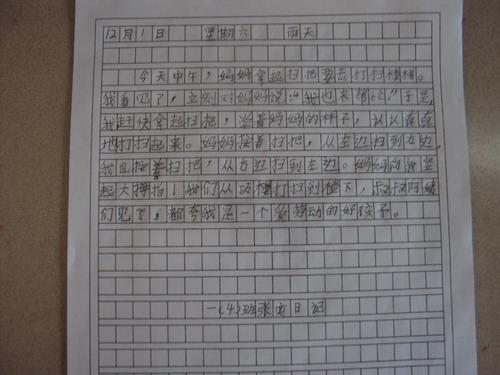 12月1日 星期六 雨天
今天中午,妈妈拿起扫把要去打扫楼梯。
我看见了,立刻对妈妈说:“我也来帮忙。”于是,
我赶快拿起扫把,学着妈妈的样子,认认真真
地打扫起来。妈妈拿着扫把,从左边扫到右边,
我也拿着扫把,从右边扫到左边。妈妈向我竖
起大拇指!我们从顶楼打扫到楼下,叔叔阿姨
们见了,都夸我是一个爱劳动的好孩子。
一(4)班张文日记